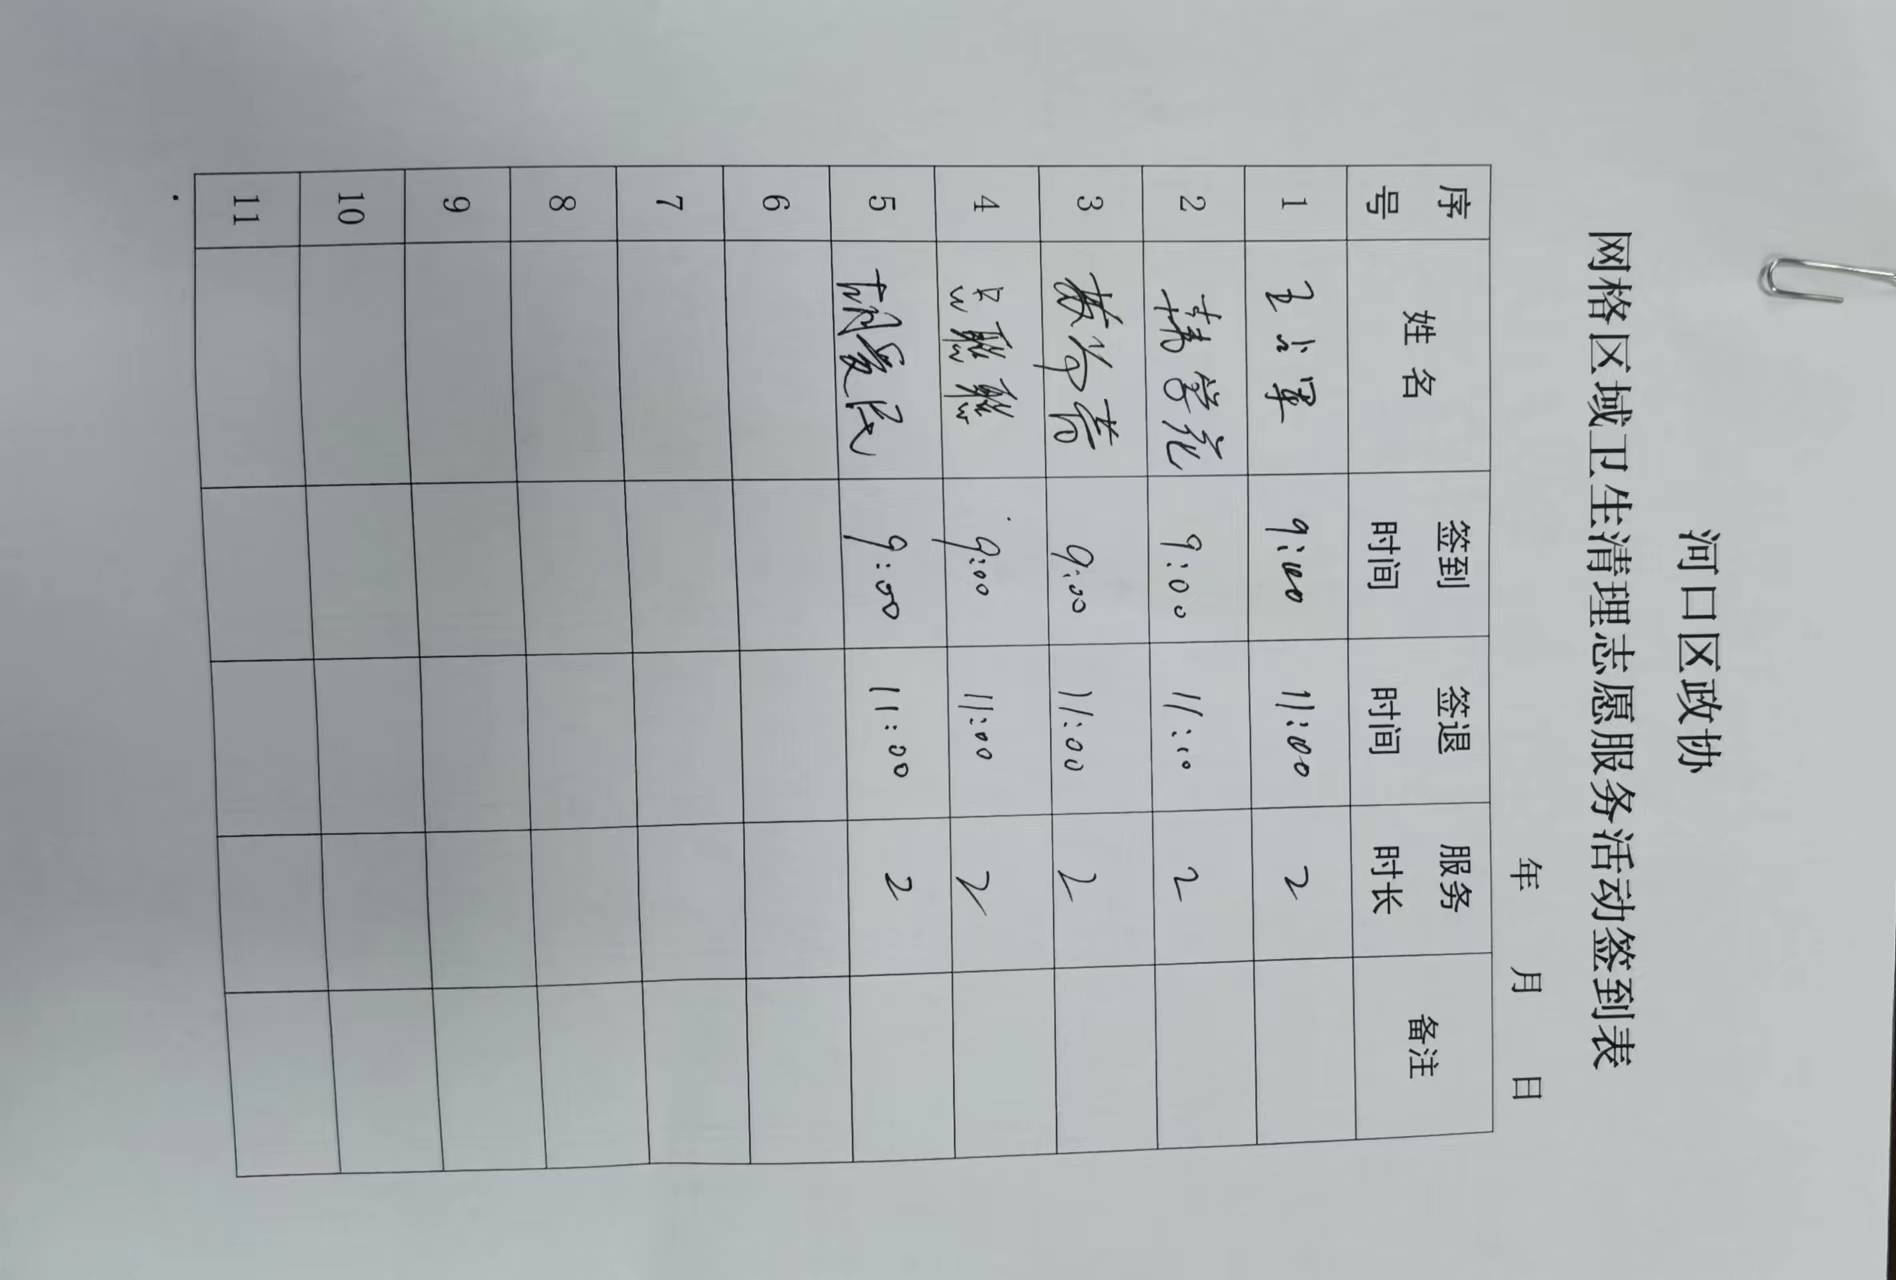 河口区政协
网格区域卫生清理志愿服务活动签到表
年 月 日
序号 姓名 签到时间 签退时间 服务时长 备注
1 王占军 9:00 11:00 2
2 韩学花 9:00 11:10 2
3 9:00 11:00 2
4 9:00 11:00 2
5 胡爱民 9:00 11:00 2
6
7
8
9
10
11